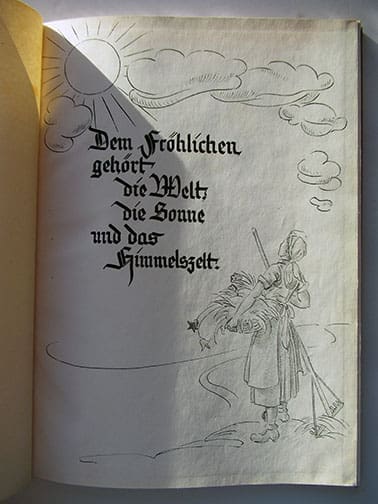 Dem Fröhlichen
gehört
die Welt,
die Sonne
und das
Himmelszelt.